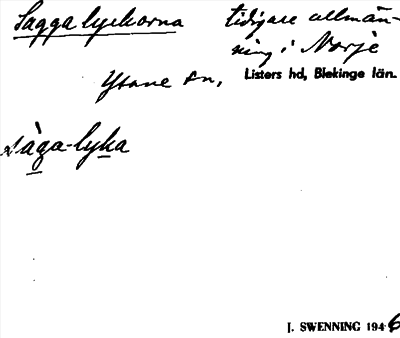 Saggalyckorna tidigare allmän-
ning i Norje
Ysane sn, Listers hd, Blekinge län.
sàga-lyka
J. SWENNING 1946